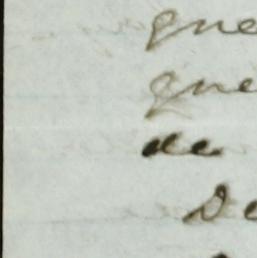 que
que
de
De